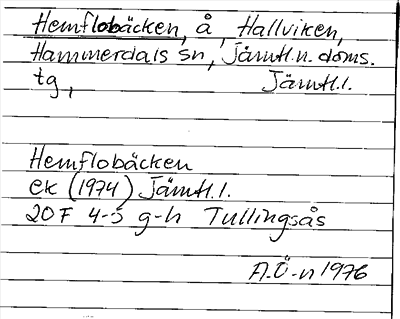 Hemflobäcken, å, Hallviken,
Hammerdals sn, Jämtl.n. doms.
tg, Jämtl.l.
Hemflobäcken
ek (1974) Jämtl.l.
20F 4-5 g-h Tullingsås
A.Ö-n 1976